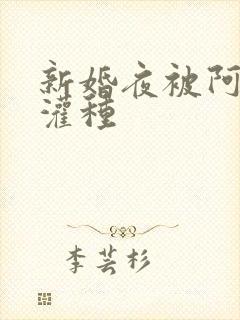 新婚夜被阿
灌種
李芸杉